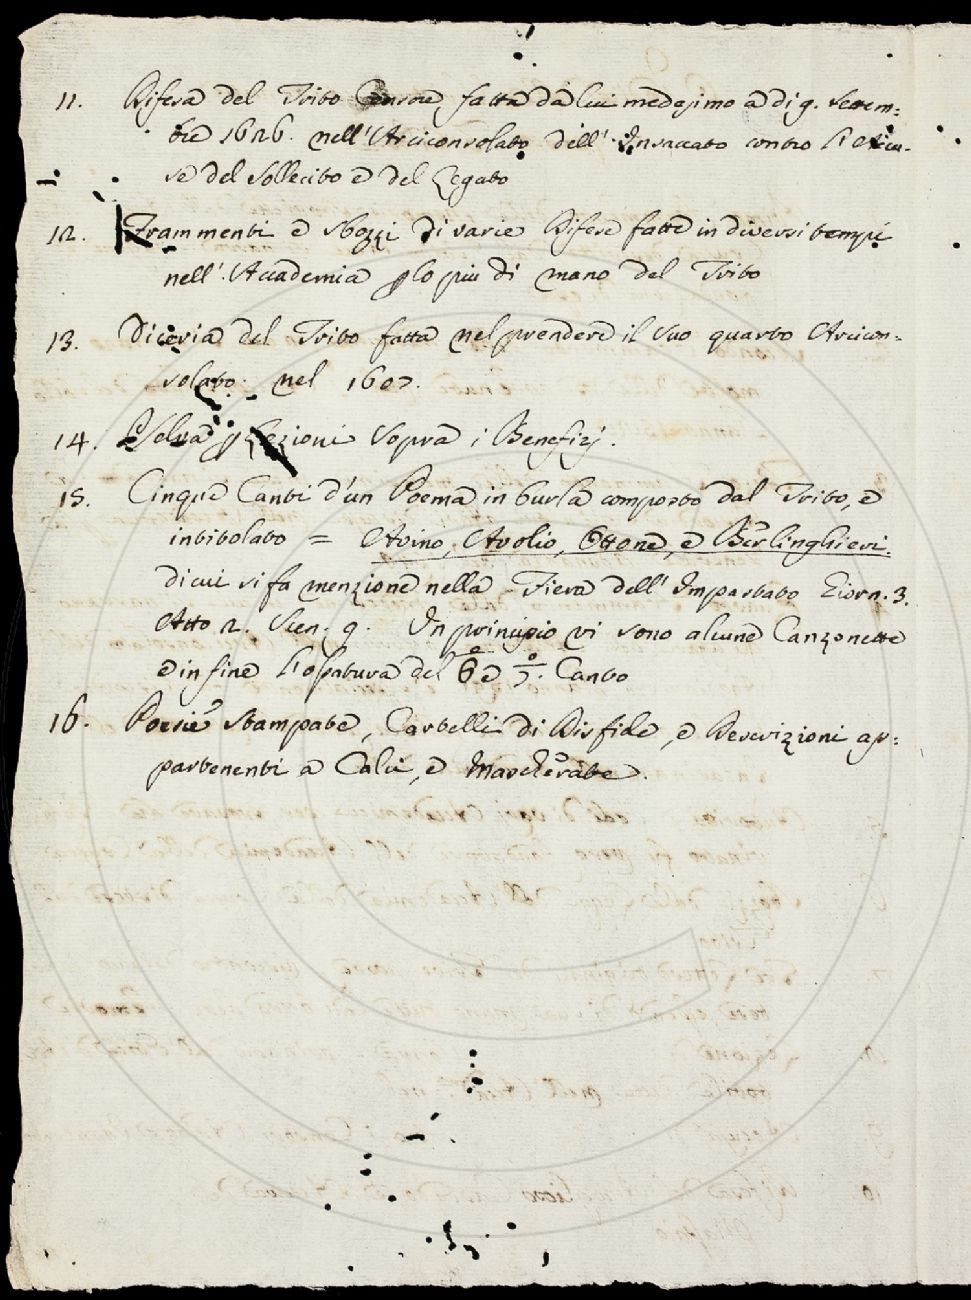 11. Difesa del Trito Censore, fatta da lui medesimo a di 9. Settem=
bre 1626. nell'Arciconsolato dell'Insaccato contro l'Accu-
se del Sollecito e del Legato
12. Frammenti e sbozzi di varie Difese fatte in diversi tempi
nell'Accademia p lo più di mano del Trito
13. Diceria del Trito fatta nel prendere il suo quarto Arcicon=
solato. nel 1607.
14. Selva p Lezioni sopra i Benefizj.
15. Cinque Canti d'un Poema in burla composto dal Trito, e
intitolato = Avino, Avolio, Ottone, e Berlinghieri.
di cui si fa menzione nella Fiera dell'Impastato Giorn. 3.
Atto 2. Scen. 9. In principio vi sono alcune Canzonette
e in fine l'opatura del 6° e 7.° Canto
16. Poesie stampate, Cartelli di Disfide, e Descrizioni ap=
partenenti a Calci, e Mascherate.